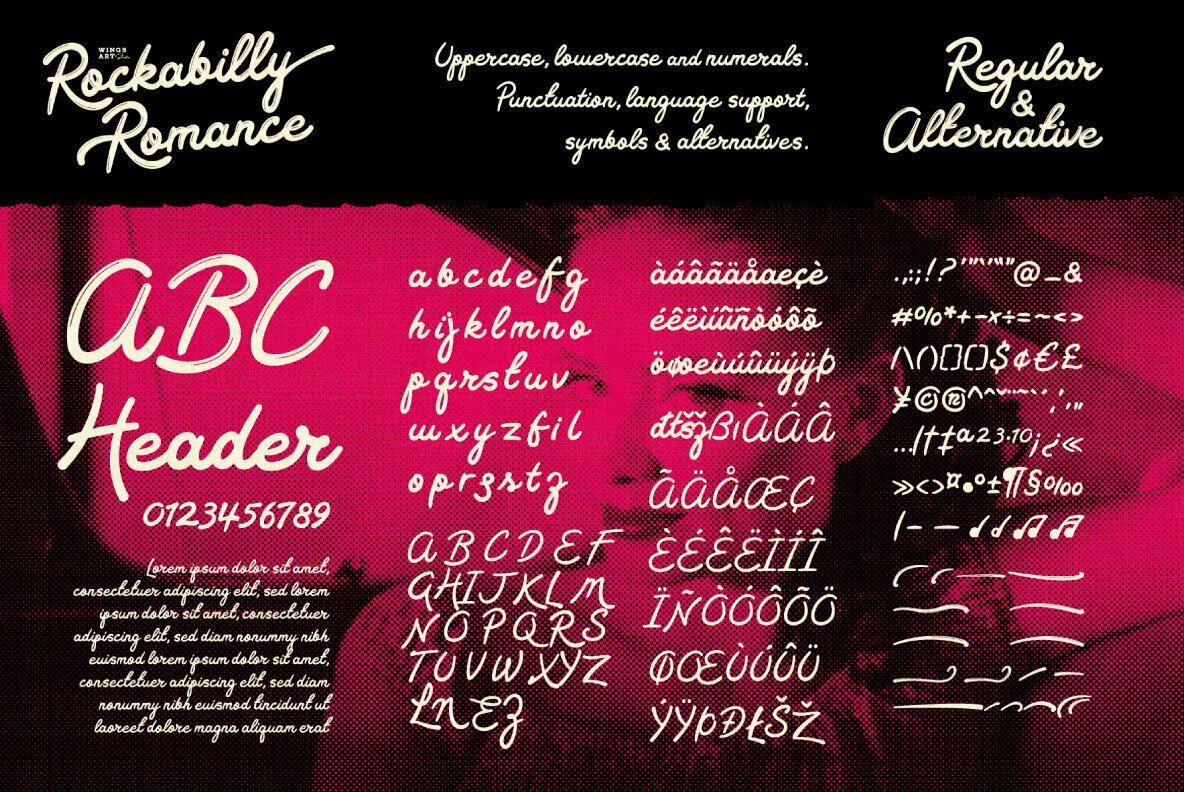 WINGS
ART Studio
Rockabilly
Romance
Uppercase, lowercase and numerals.
Punctuation, language support,
symbols & alternatives.
Regular
&
Alternative
ABC
Header
0123456789
Lorem ipsum dolor sit amet,
consectetuer adipiscing elit, sed lorem
ipsum dolor sit amet, consectetuer
adipiscing elit, sed diam nonummy nibh
euismod lorem ipsum dolor sit amet,
consectetuer adipiscing elit, sed diam
nonummy nibh euismod tincidunt ut
laoreet dolore magna aliquam erat
a b c d e f g
h i j k l m n o
p q r s t u v
w x y z f i l
o p r s s t z
A B C D E F
G H I J K L M
N O P Q R S
T U V W X Y Z
L N E Z
àáâãäåæçè
éêëìíîïñòóôõ
öøœùúûüýÿþ
đłšžßıÀÁÂ
ÃÄÅŒÇ
ÈÉÊËÌÍÎ
ÏÑÒÓÔÕÖ
ØŒÙÚÛÜ
ÝŸÞĐŁŠŽ
.,:;!?'"‘’“”@_&
#%*+-×÷=~<>
/\()[]{}$¢€£
¥©®
…|†‡ª²³·¹º¡¿«
»‹›¤•°±¶§‰
|– — ♩ ♩ ♫ ♫